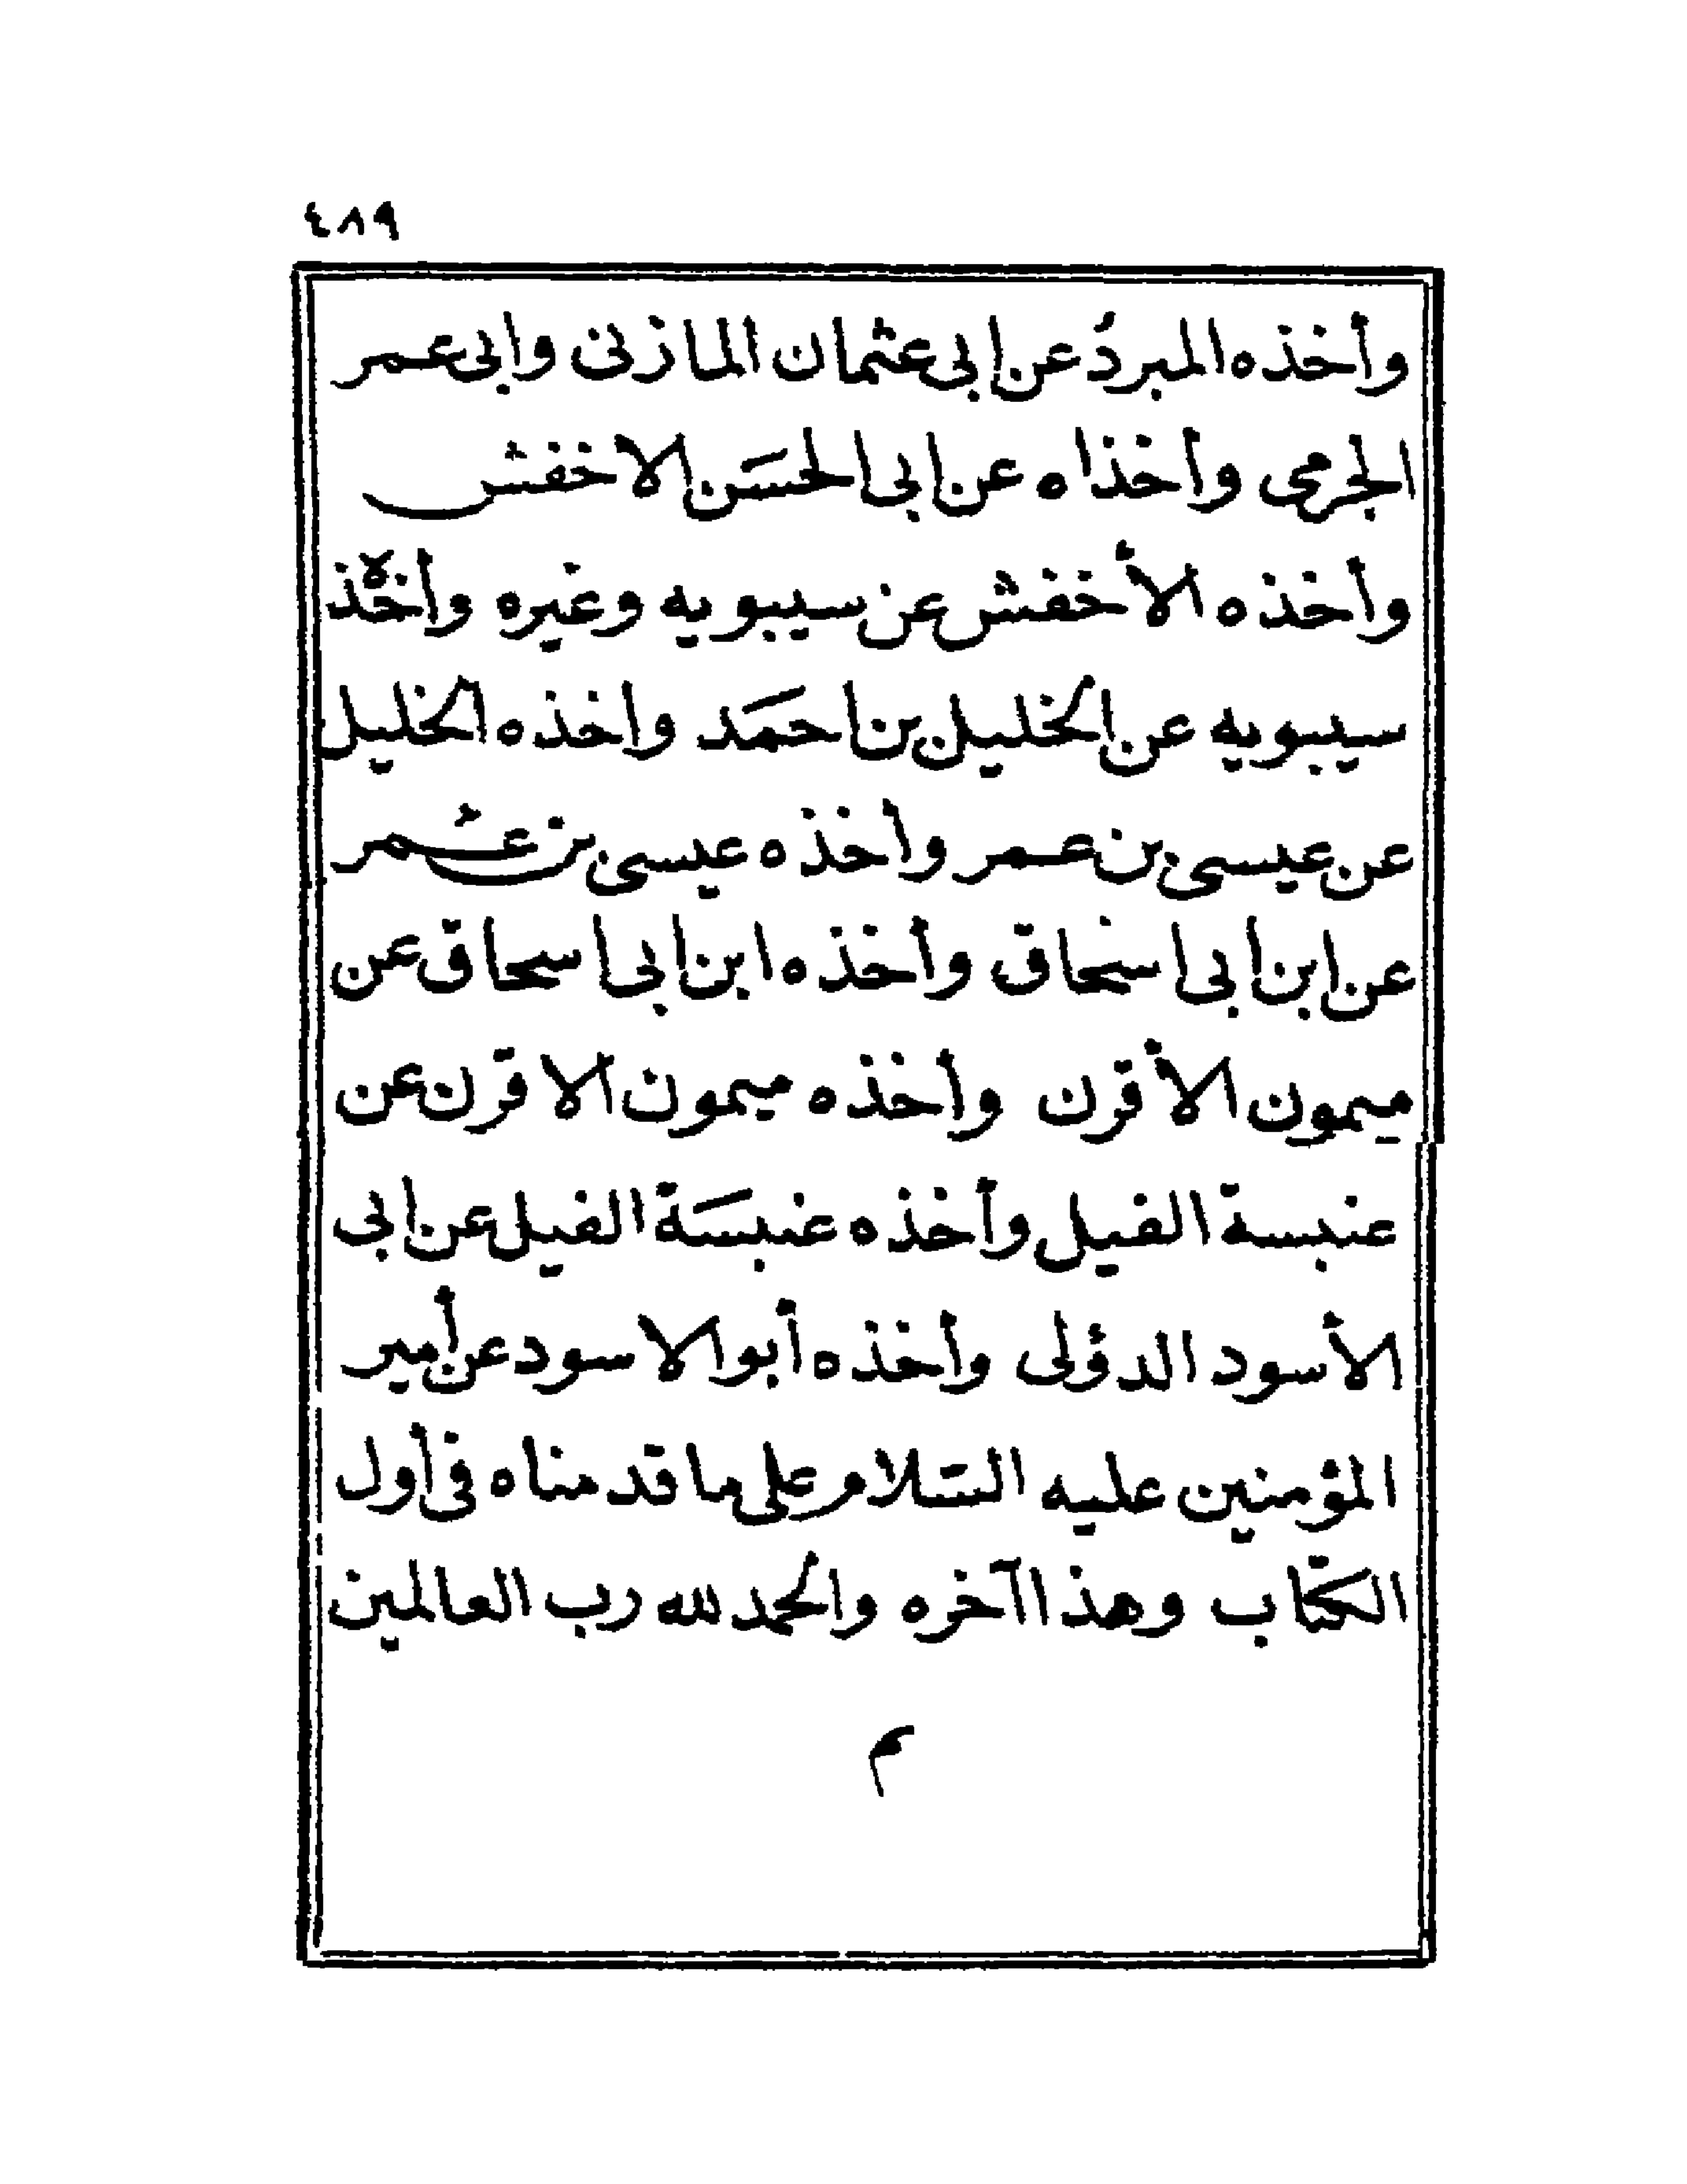 ٤٨٩
وأخذه المبردُ عن ابى عثمان المازنى وابى عمر
الجرمى وأخذاه عن ابى الحسَن الاخفش
وأخذه الأخفش عن سيبويه وغيره وأخذه
سيبويه عن الخليل بن احمَد واخذه الخليل
عن عيسى بن عمر وأخذه عيسى بن عُمر
عن ابن ابى اسحٰاق وأخذه ابن ابى اسحاق عن
ميمون الأقرن وأخذه ميمون الاقرن عن
عنبسة الفيل وأخذه عنبسَة الفيل عن ابى
الأسود الدؤلى وأخذه أبو الاسود عن أمير
المؤمنين عليه السَلام على ما قدمناه فى أول
الكتاب وهذا آخره والحمد لله رب العالمين
م